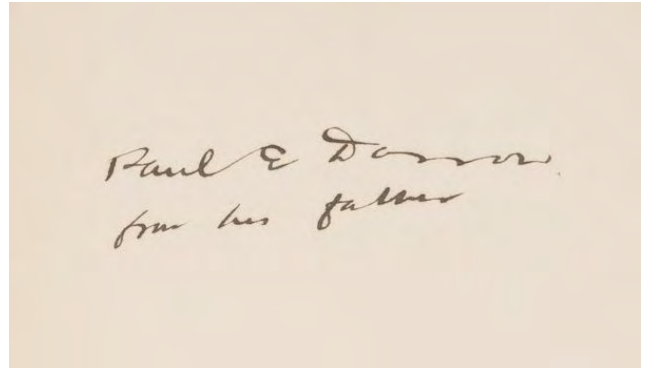 Paul E Darrow
from his father